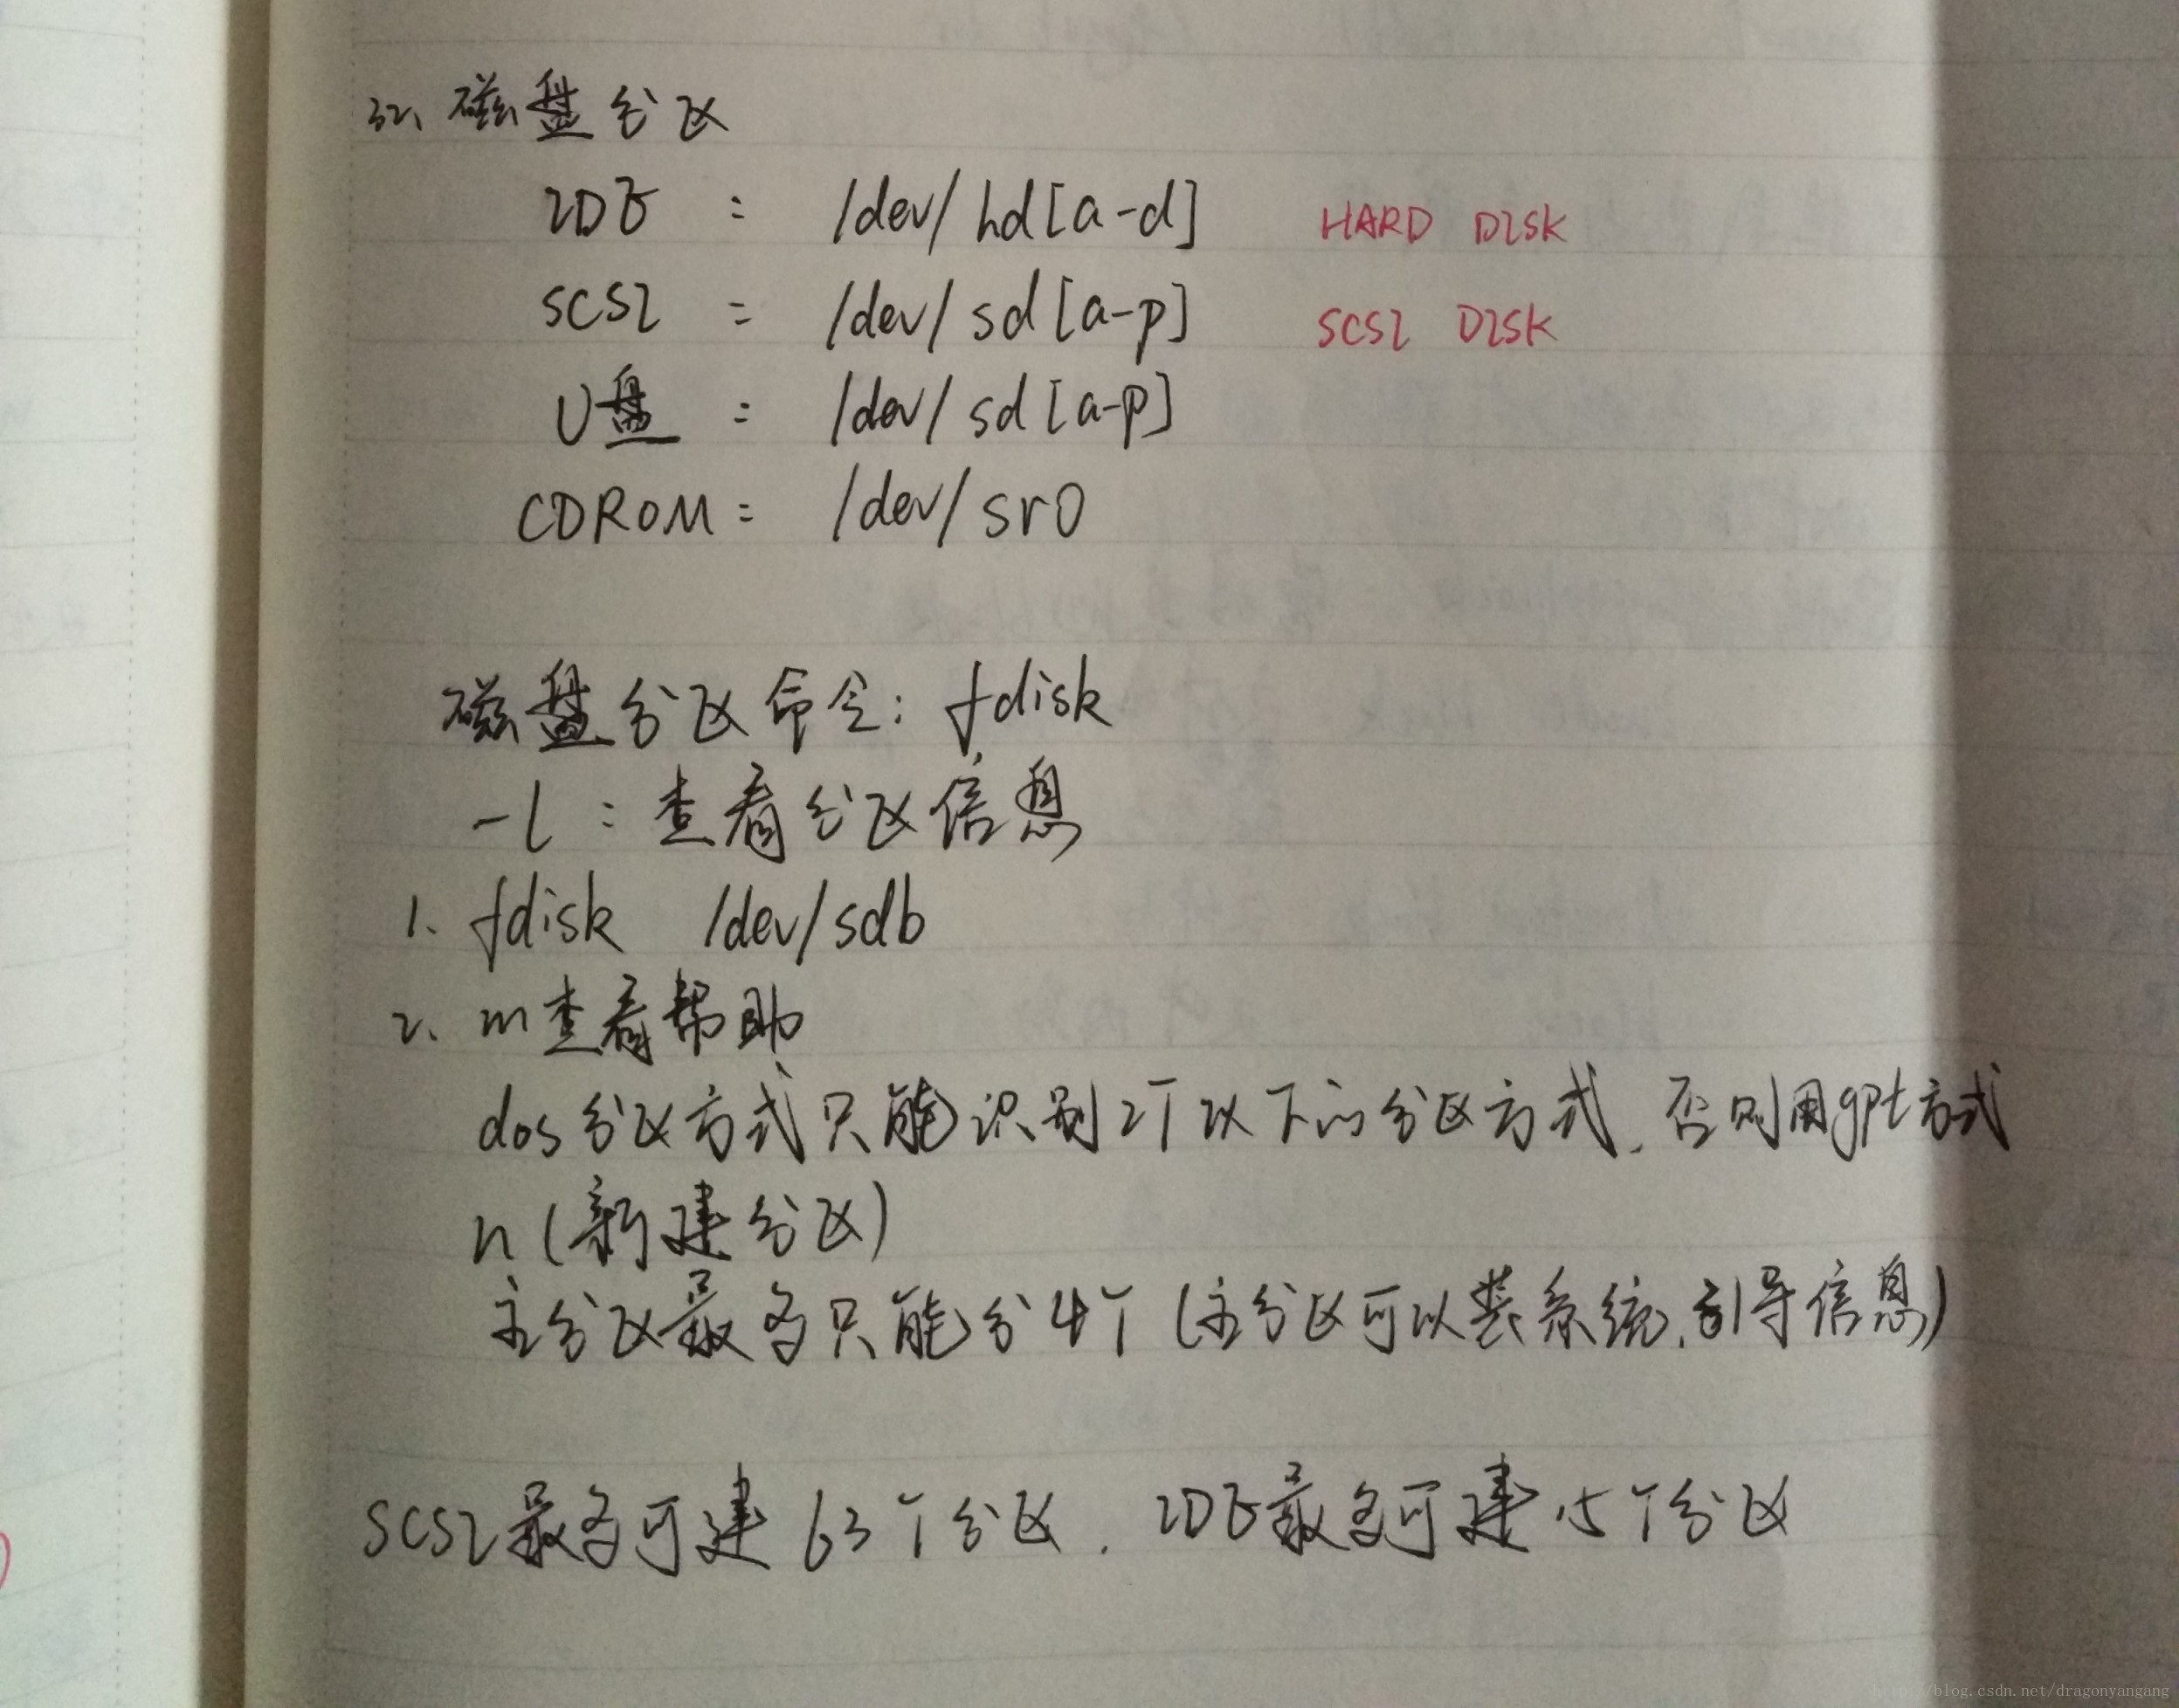 32、磁盘分区
IDE : /dev/hd[a-d] HARD DISK
SCSI : /dev/sd[a-p] SCSI DISK
U盘 : /dev/sd[a-p]
CDROM : /dev/sr0
磁盘分区命令: fdisk
-l : 查看分区信息
1、fdisk /dev/sdb
2、m查看帮助
dos分区方式只能识别2T以下的分区方式, 否则用gpt方式
n (新建分区)
主分区最多只能分4个 (主分区可以装系统, 引导信息)
SCSI最多可建 63个分区, IDE最多可建 15个分区
http://blog.csdn.net/dragonyangang